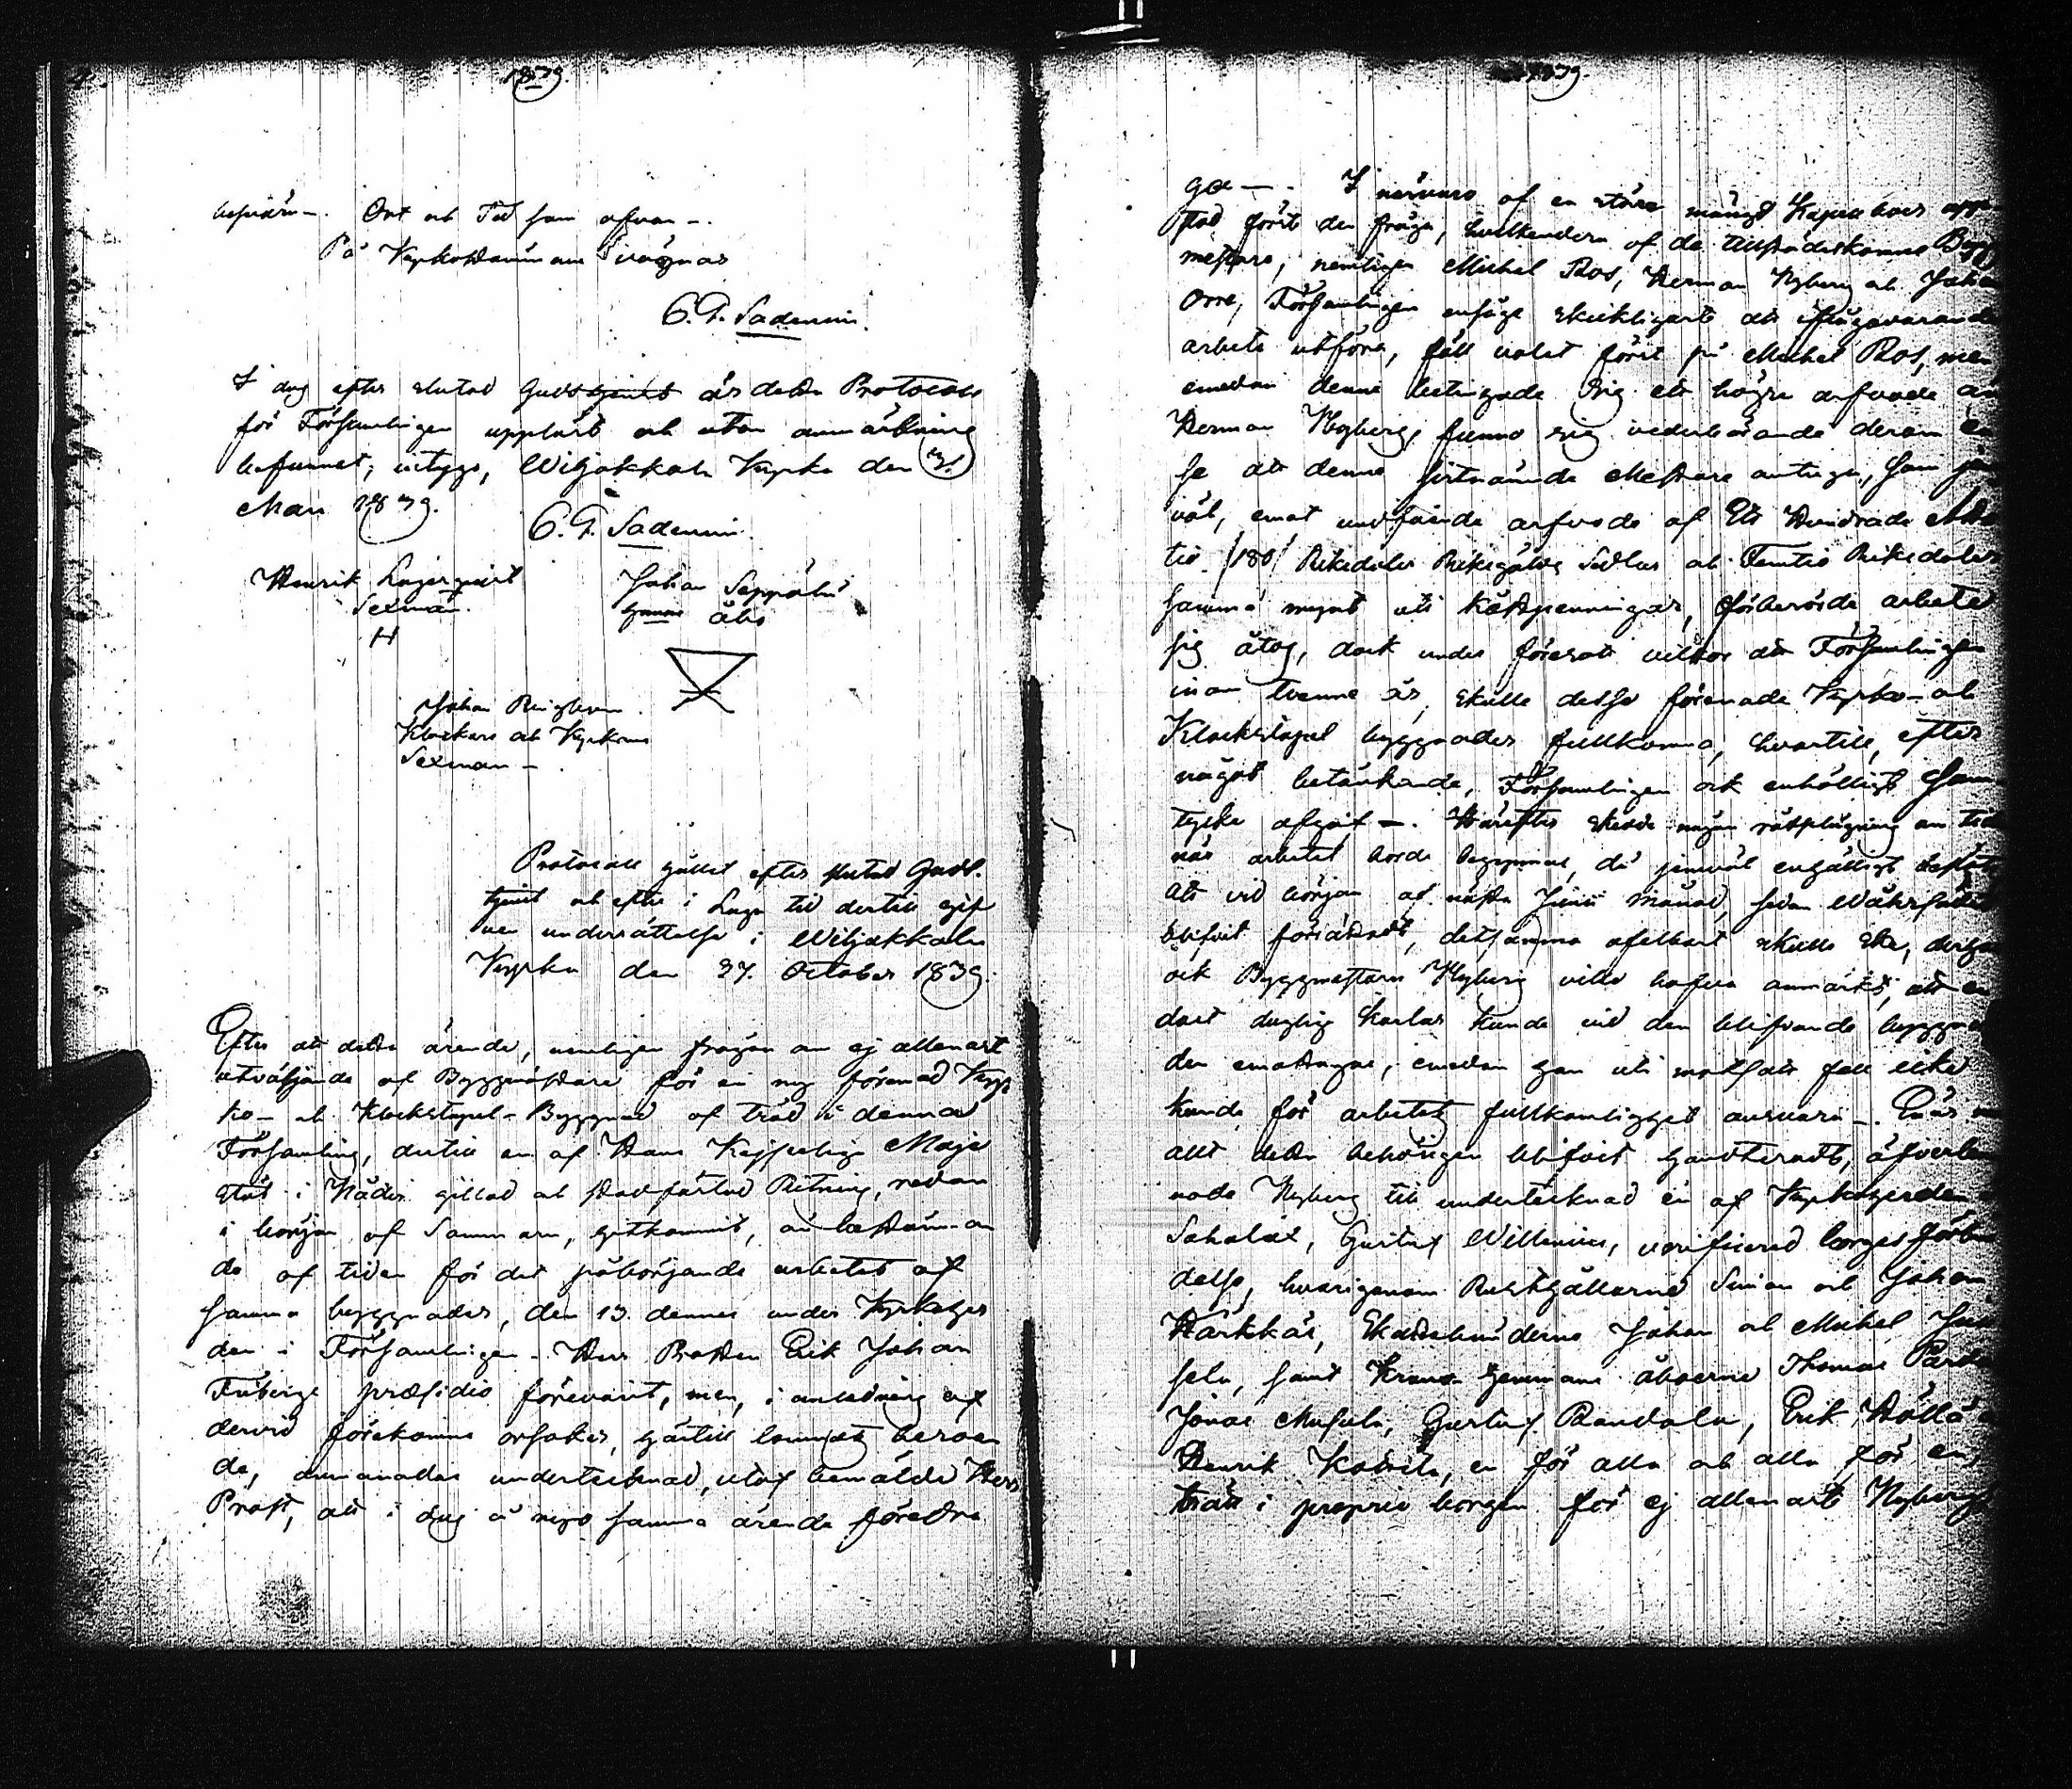 1839.
besvära –. Ort och Tid som ofvan –.
På Kyrkostämmans vägnar
C. G. Sadenius.
I dag efter slutad Gudstjenst är detta Protocoll
för Församlingen uppläst och utan anmärkning
befunnet; intyga, Wiljakkala Kyrka den 31
Mars 1839.
C. G. Sadenius.
Henrik Lagerqvist
Sexman.
H
Johan Seppälä
Hemmans åbo
Johan Ringbom
Klockare och Kyrkans
Sexman –
Protocoll hållet efter slutad Guds-
tjenst och efter i Laga tid dertill gif
ven underrättelse i Wiljakkala
Kyrka den 27. October 1839.
Efter att detta ärende, nemligen frågan om ej allenast
utväljande af Byggmästare för en ny förenad Kyr-
ko- och Klockstapel-Byggnad af träd i denna
Församling, dertill en af Hans Kejserliga Maje
stät i Nåder gillad och stadfästad Ritning, redan
i början af Sommaren, hitkommit, än bestämman
de af tiden för det påbörjande arbetet af
samma byggnader, den 13. dennes under Kyrkoher
den i Församlingen – Herr Prosten Erik Johan
Fribergs præsidio förevarit, men, i anledning af
dervid förekomne orsaker, härtill lemnats beroen
de, anmanades undertecknad, utaf bemälde Herr
Prost, att i dag å nyo samma ärende företa
1839.
ga –. I närvaro af en större mängd Kapellboer upp-
stod först den fråga, hvilkendera af de tillstädeskomne Bygg
mästare, nemligen Michel Ros, Herman Nyberg och Johan
Orre, Församlingen ansåge skickligast att ifrågavarande
arbete utföra, föll valet först på Michel Ros, men
emedan denne betingade sig ett högre arfvode än
Herman Nyberg, funno sig vederbörande derom en
se att denne sistnämnde Mästare antaga, som jem
väl, emot undfående arfvode af Ett Hundrade Åtta
tio /180/ Riksdaler Riksgälds Sedlar och Femtio Riksdaler
samma mynt uti Kostpenningar, förberörde arbete
sig åtog, dock under föresatt vilkor att Församlingen
inom tvenne år, skulle desse förenade Kyrko- och
Klockstapel byggnader fullkomna, hvartill, efter
något betänkande, Församlingen ock enhälligt sam
tycke afgaf –. Härefter skedde någon rådplägning om tiden
när arbetet borde begynnas, då jemväl enhälligt beslöts
att vid början af nästa Junii månad, sedan Wårsådet
blifvit förrättadt, detsamma ofelbart skulle ske, dervid
ock Byggmästaren Nyberg ville hafva anmärkt, att en
dast duglige Karlar kunde vid den blifvande byggna
den emottagas, emedan han uti motsatt fall icke
kunde för arbetets fullkomlighet ansvara –. När nu
allt detta behörigen blifvit handteradt, öfverlem
nade Nyberg till undertecknad en af Kyrkoherden i
Sahalax, Gustaf Willenius, verificerad borgesförbin
delse, hvarigenom Rusthållarne Simon och Johan
Härkkäs, Skattebönderne Johan och Michel
sela, samt Krono-Hemmans åboerne Thomas
Jonas Musula, Gustaf Randala, Erik
Henrik Kaivila, en för alla och alla för en,
trädt i proprie borgen för ej allenast Nybergs